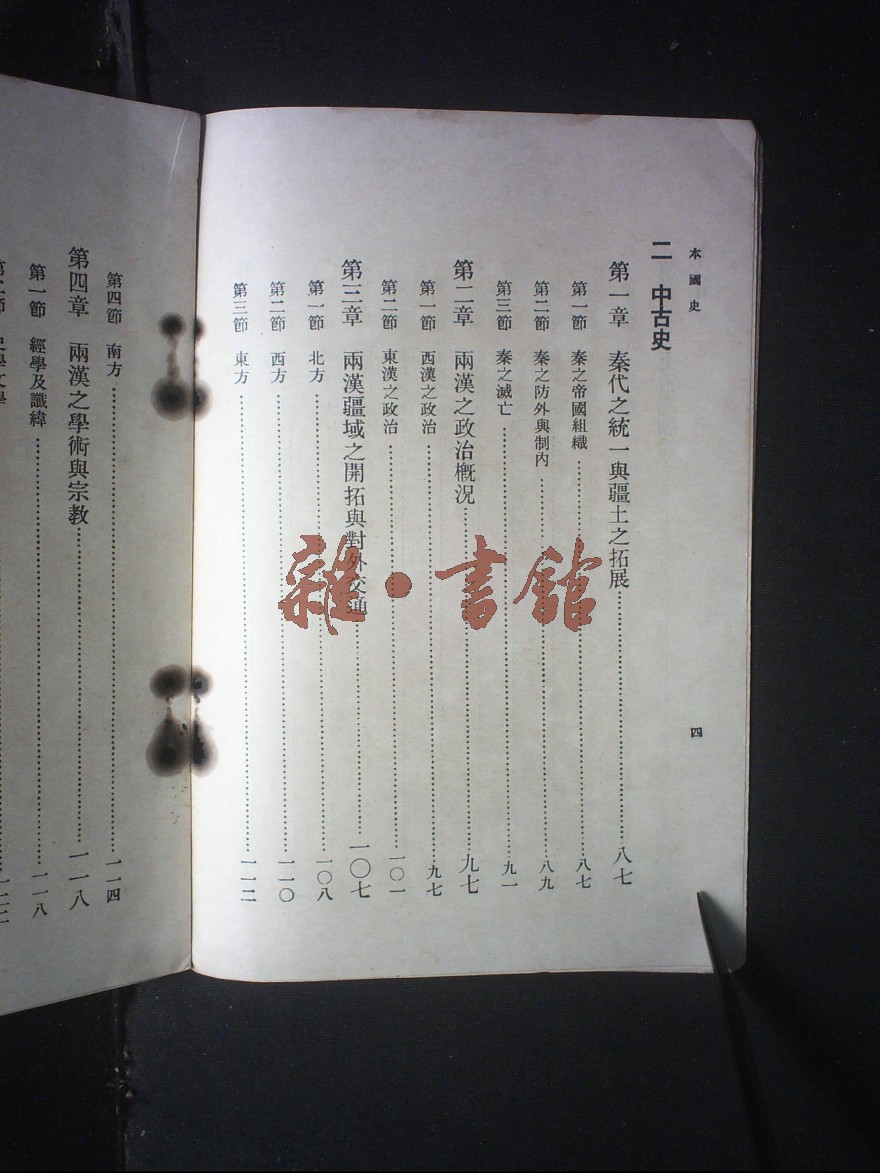 本國史
四
二 中古史
第一章 秦代之統一與疆土之拓展……八七
第一節 秦之帝國組織……八七
第二節 秦之防外與制內……八九
第三節 秦之滅亡……九一
第二章 兩漢之政治概況……九七
第一節 西漢之政治……九七
第二節 東漢之政治……一〇一
第三章 兩漢疆域之開拓與對外交通……一〇七
第一節 北方……一〇八
第二節 西方……一一〇
第三節 東方……一一二
第四節 南方……一一四
第四章 兩漢之學術與宗教……一一八
第一節 經學及讖緯……一一八
雜·書館